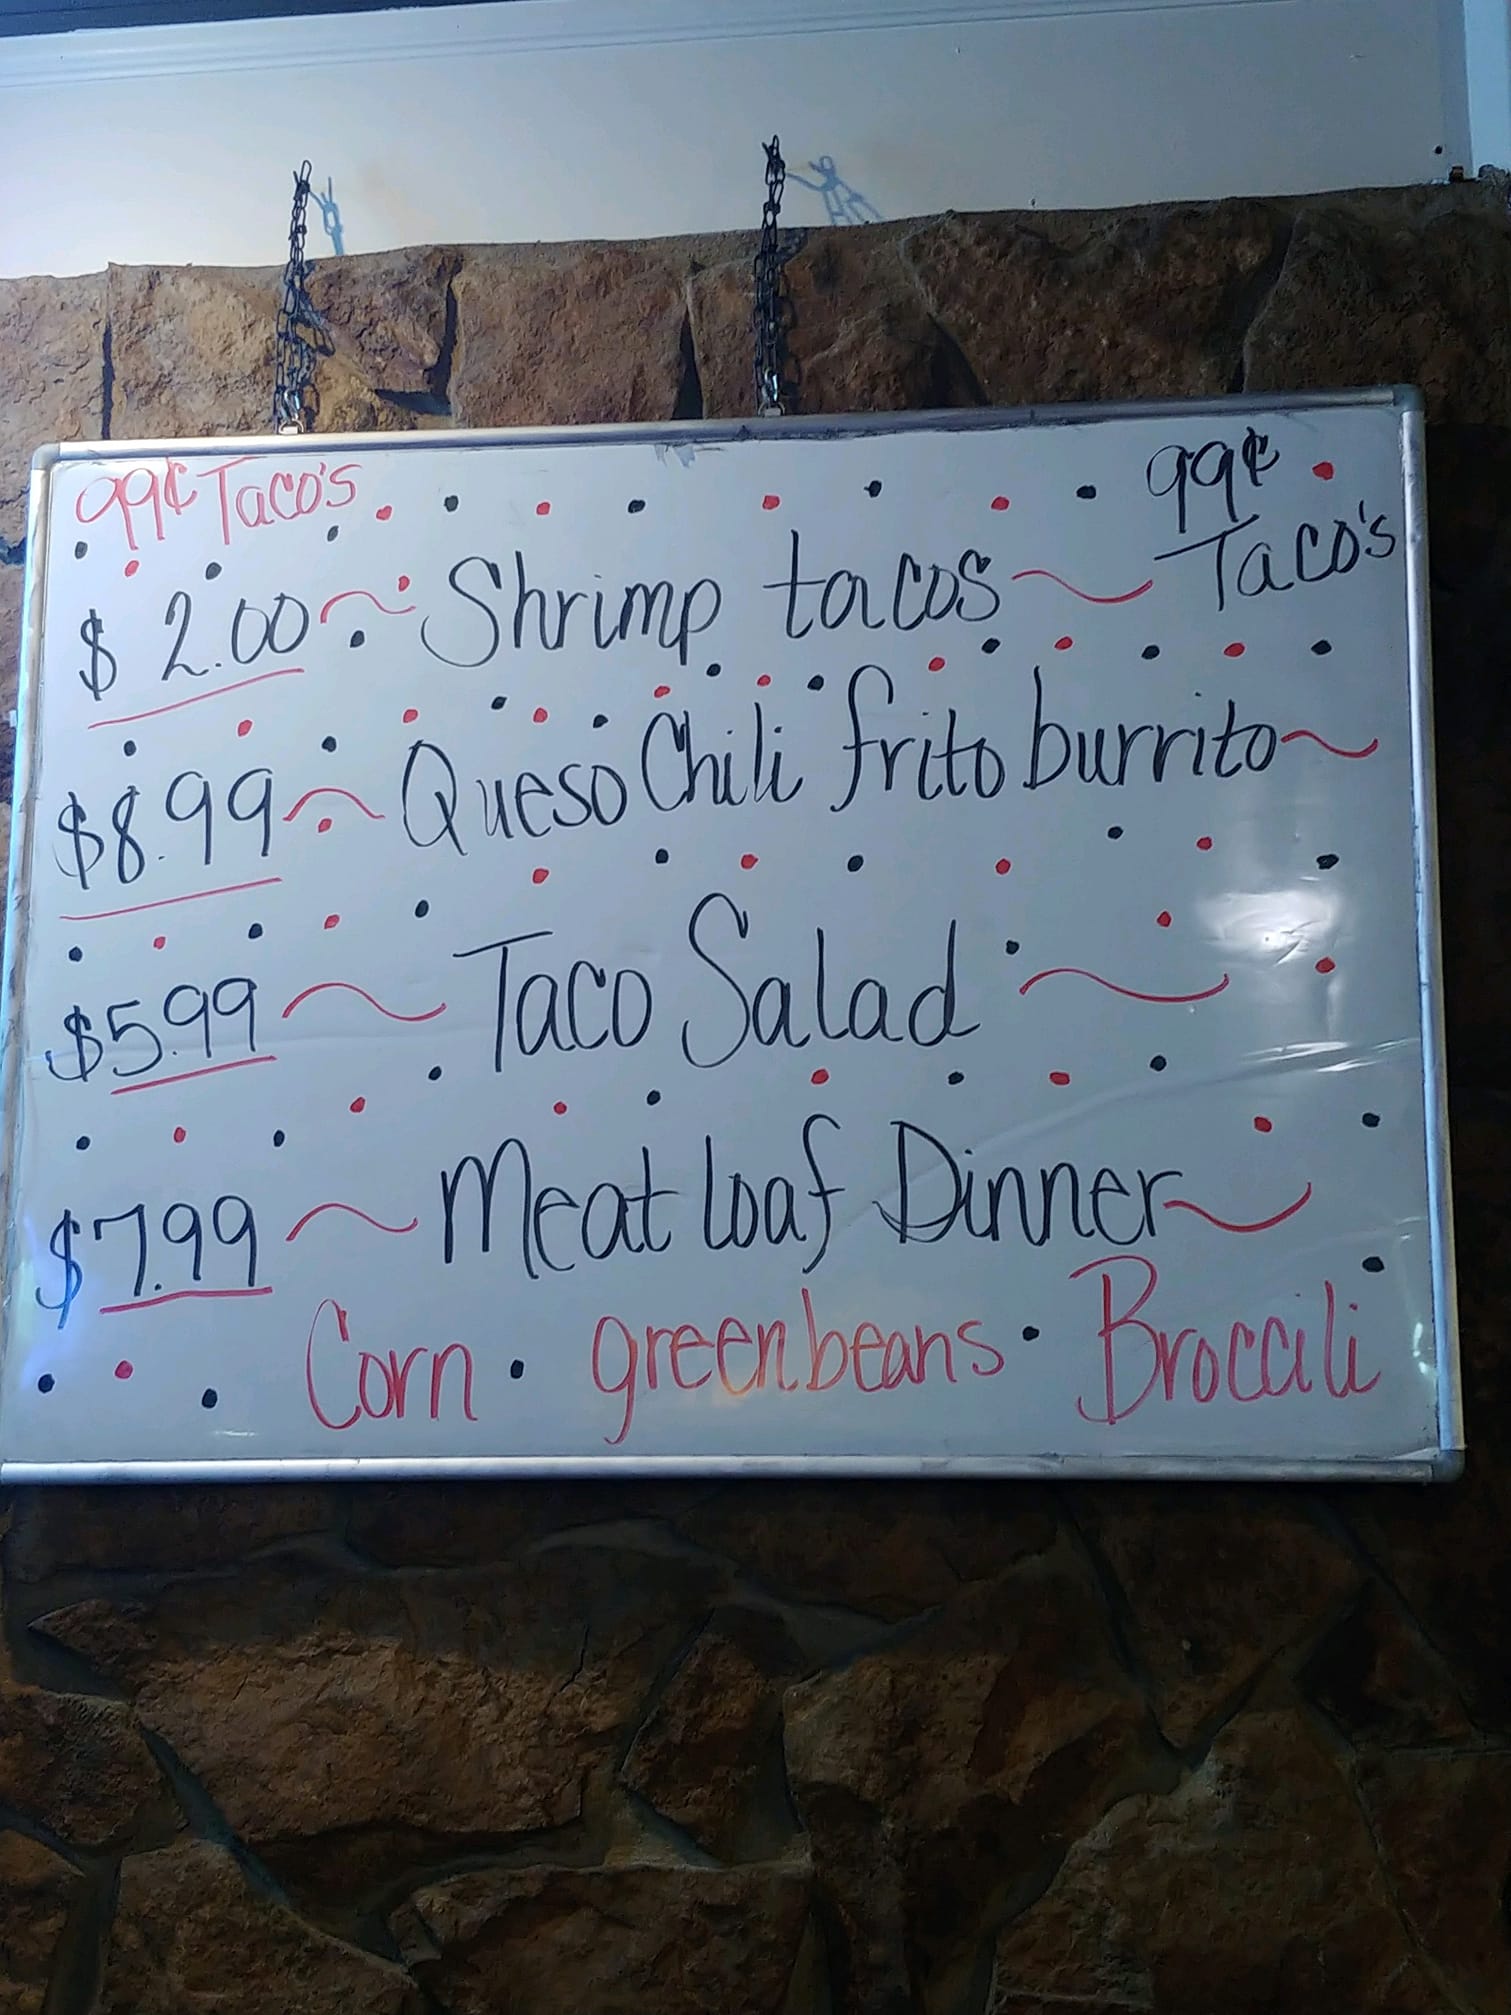 99¢ Taco's
99¢
Taco's
$2.00 ~ Shrimp tacos ~
$8.99 ~ Queso Chili frito burrito ~
$5.99 ~ Taco Salad ~
$7.99 ~ Meat loaf Dinner ~
Corn • green beans • Broccili